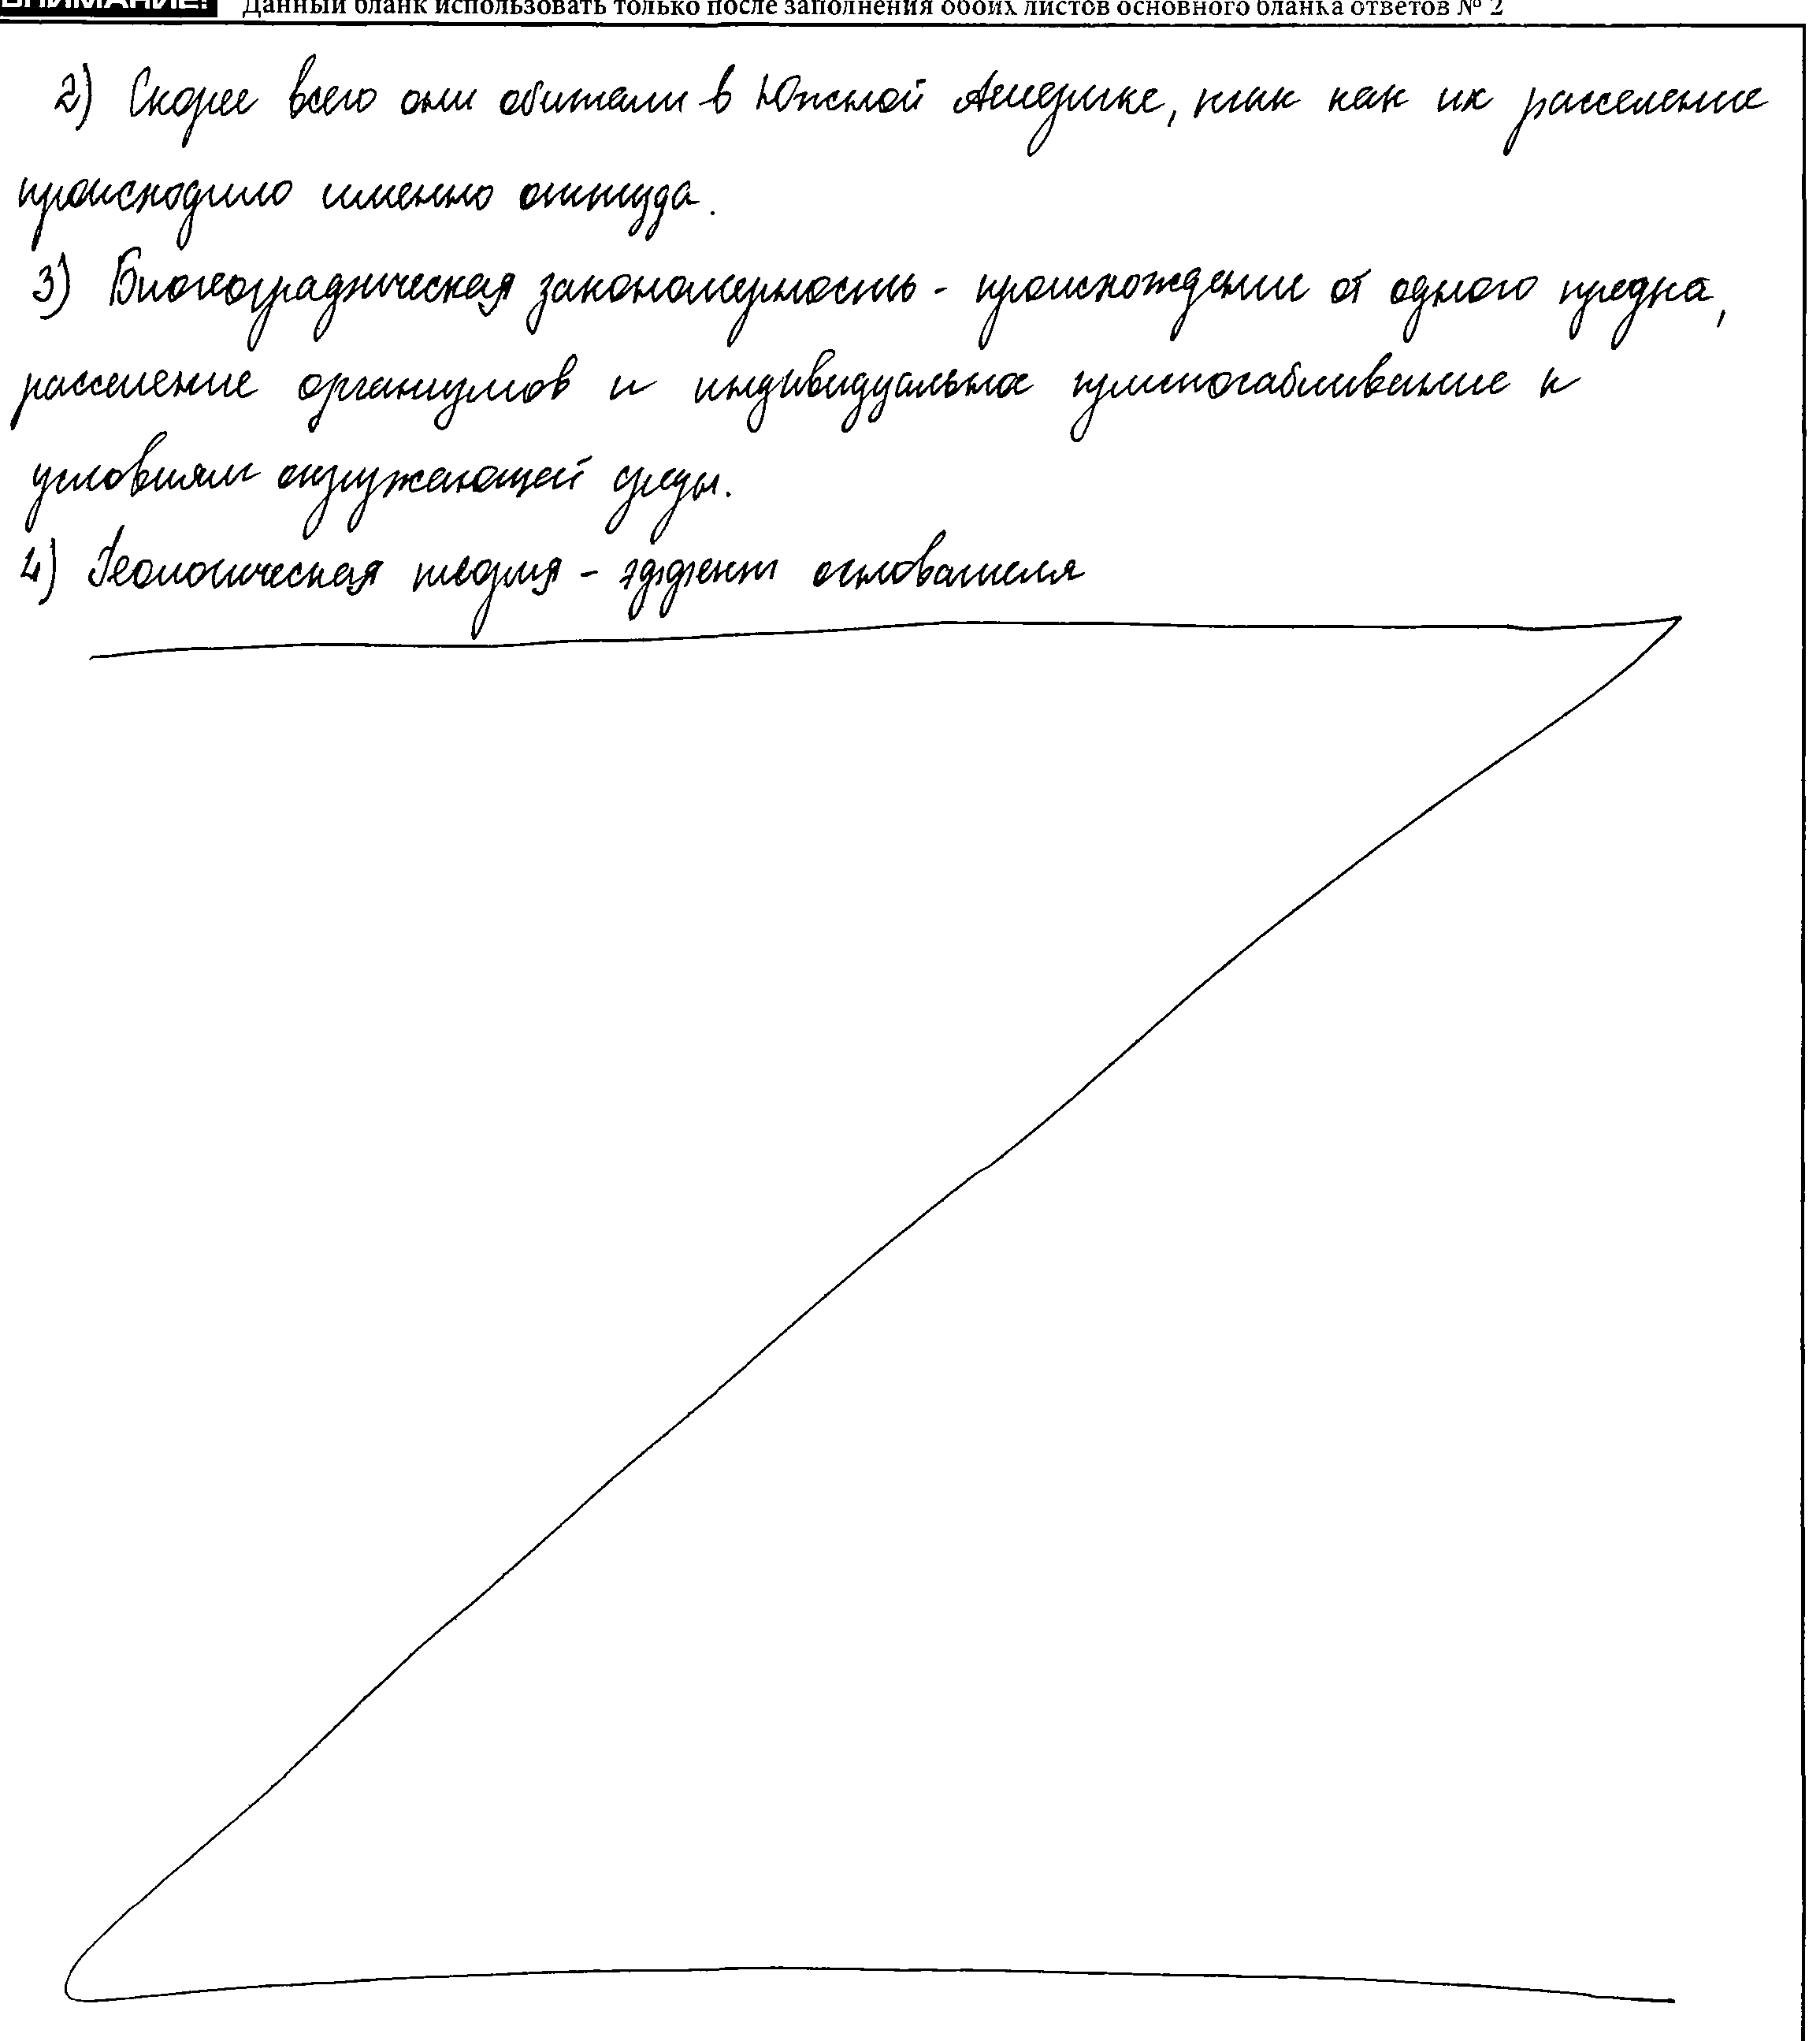 ВНИМАНИЕ! Данный бланк использовать только после заполнения обоих листов основного бланка ответов № 2
2) Скорее всего они обитали в Южной Америке, так как их расселение
происходило именно оттуда.
3) Биогеографическая закономерность - происхождение от одного предка,
расселение организмов и индивидуальное приспосабливание к
условиям окружающей среды.
4) Геологическая теория - эффект основателя